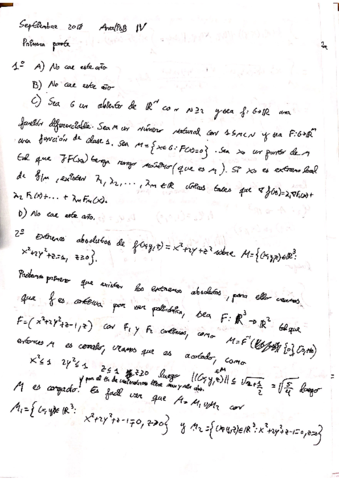 Septiembre 2018 Análisis IV
Primera parte
1º A) No cae este año
B) No cae este año
C) Sea G un abierto de ℝⁿ con n≥2 y sea f: G→ℝ una
función diferenciable. Sea m un número natural con 1≤m<n y sea F: G→ℝᵐ
una función de clase 1, sea M={x∈G: F(x)=0}. Sea x₀ un punto de M
tal que JF(x₀) tenga rango máximo (que es m). Si x₀ es extremo local
de f|M, existen λ₁, λ₂, ..., λm∈ℝ tales que ∇f(x₀)=λ₁∇F₁(x₀)+
λ₂ F₂(x₀)+...+λm Fm(x₀).
D) No cae este año.
2º Extremos absolutos de f(x,y,z)=x²+y²+z² sobre M={(x,y,z)∈ℝ³:
x²+2y²+z=1, z≥0}.
Probamos primero que existen los extremos absolutos, para ello veamos
que f es continua por ser polinómica, sea F: ℝ³→ℝ² tal que
F=(x²+2y²+z-1, z) con F₁ y F₂ continuas, como M=F⁻¹({0}
entonces M es cerrado, veamos que es acotado, como
x²≤1 2y²≤1 z≤1 z≥0 luego ||(x,y,z)||≤
M es compacto. Es fácil ver que M=M₁∪M₂ con
M₁={(x,y,z)∈ℝ³: x²+2y²+z-1=0, z>0} y M₂={(x,y,z)∈ℝ³: x²+2y²+z-1=0, z=0}